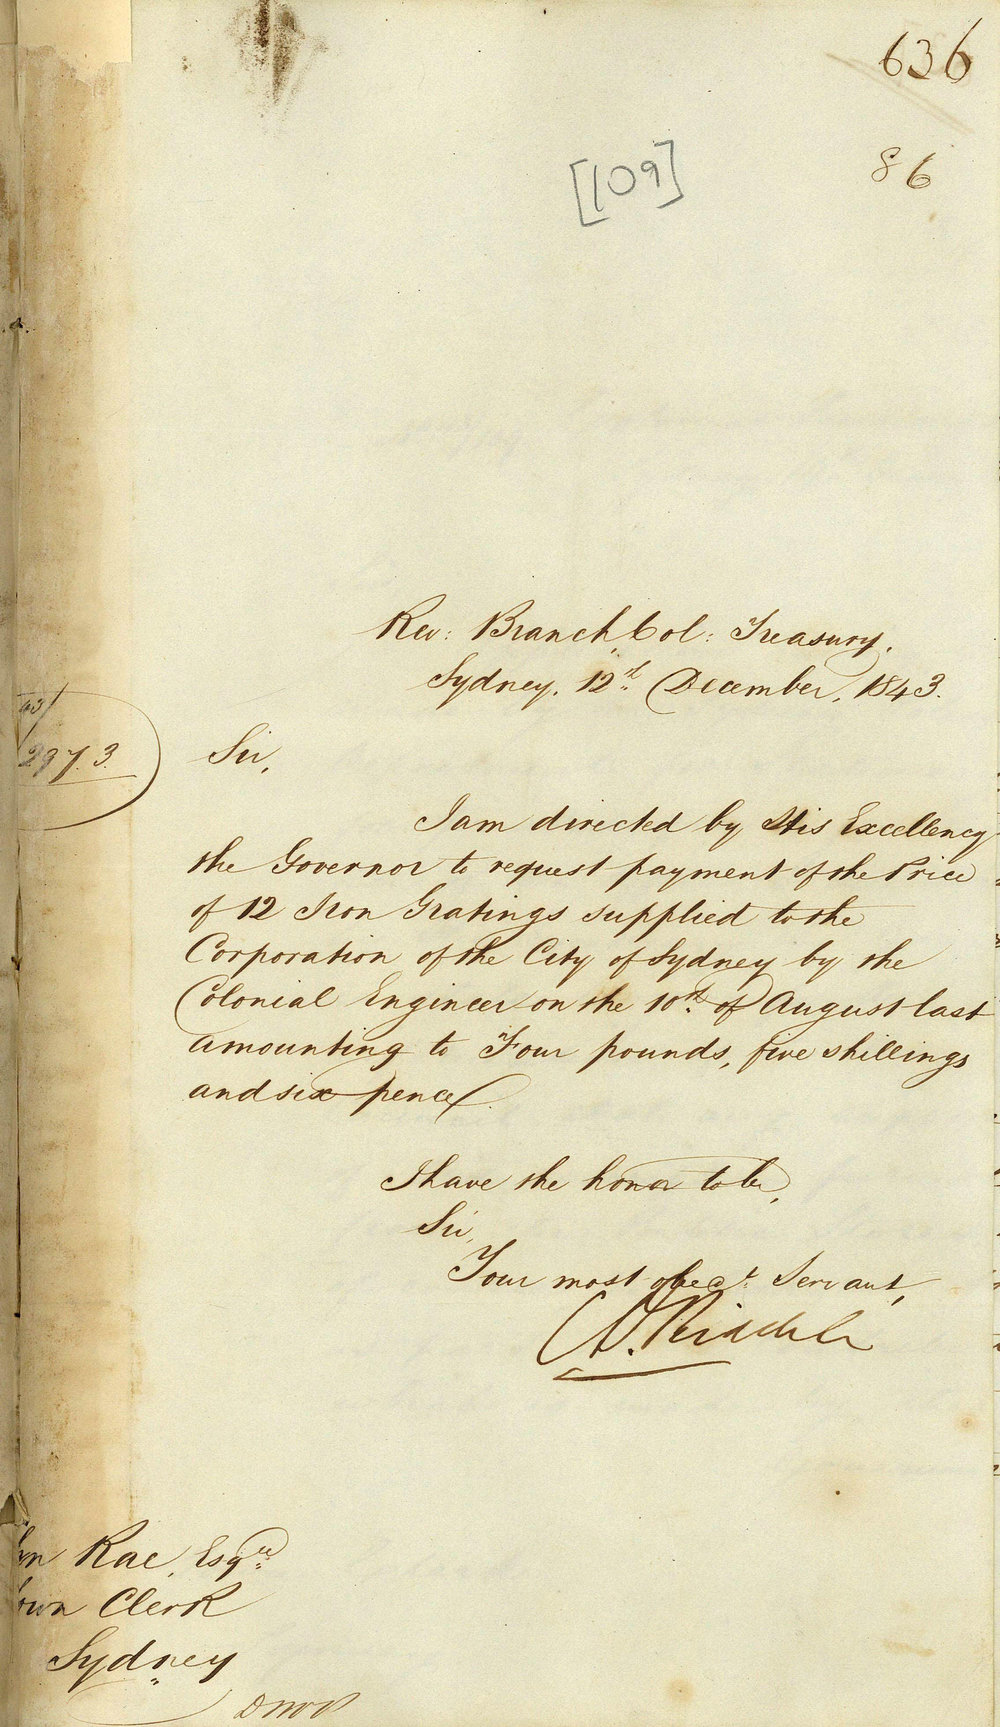 636
86
[109]
Rev: Branch, Col: Treasury.
Sydney. 12th December, 1843.
43/
297.3
Sir,
I am directed by His Excellency
the Governor to request payment of the Price
of 12 Iron Gratings supplied to the
Corporation of the City of Sydney by the
Colonial Engineer on the 10th of August last
amounting to Four pounds, five shillings
and six pence.
I have the honor to be,
Sir,
Your most obedt. Servant,
C. Riddell
hn Rae, Esqre
own Clerk
Sydney